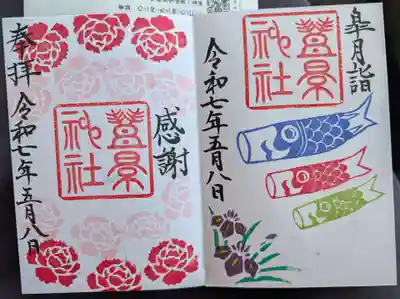 皐月詣
豊景
神社
令和七年五月八日
感謝
豊景
神社
奉拝
令和七年五月八日